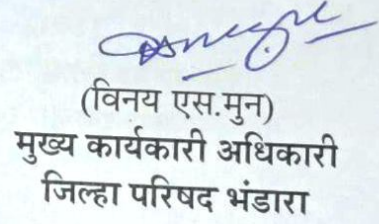 (विनय एस.मुन)
मुख्य कार्यकारी अधिकारी
जिल्हा परिषद भंडारा